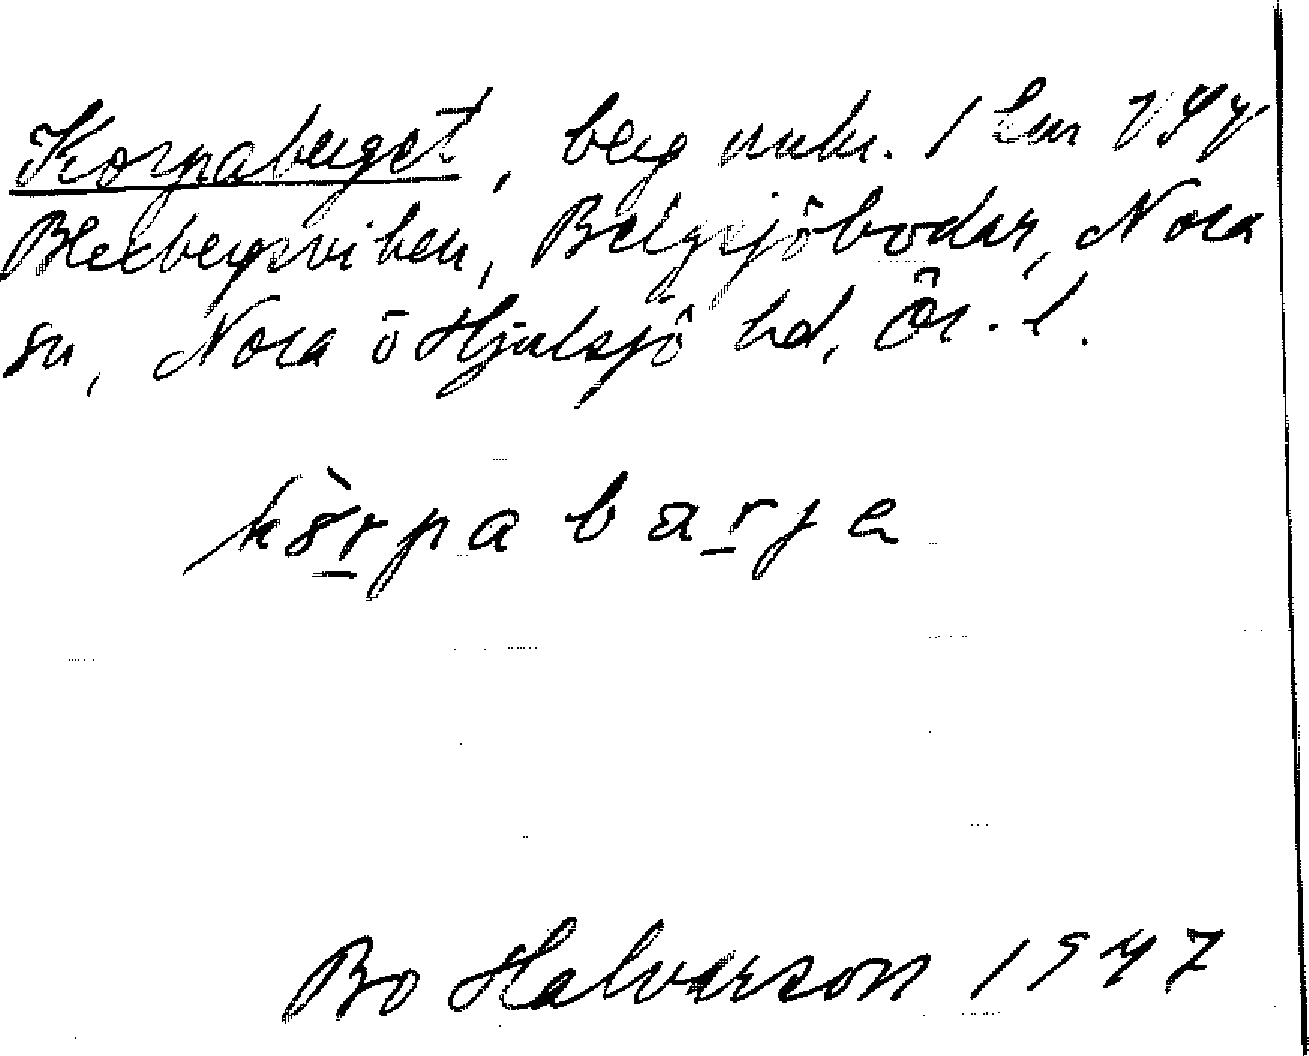 Korpaberget, berg unkr. 1 km VSV
Blexbergsviken, Bälgsjöbodar, Nora
sn, Nora o Hjulsjö hd, Ör. l.
kòrpabarje
Bo Halvarson 1947